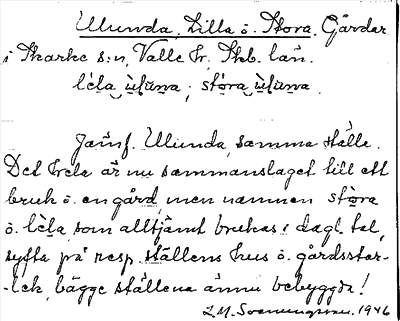 Ulunda, Lilla o. Stora. Gårdar
i Skarke s:n, Valle hr, Skb. län.
lèla ùluna ; stòra ùluna.
Jämf. Ulunda, samma ställe.
Det hela är nu sammanslaget till ett
bruk o. en gård, men namnen stòra
o. lèla, som alltjämt brukas i dagl. tal,
syfta på resp. ställens hus o. gårdsstor-
-lek, bägge ställena ännu bebyggda!
1946